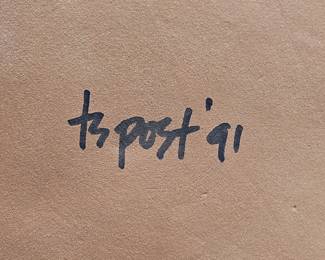 ts post '91